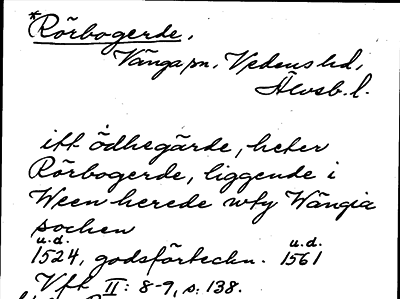 *Rörbogerde,
Vånga sn, Vedens hd,
Älvsb. l.
itt ödhegärde, heter
Rörbogerde, liggende i
Ween herede wty Wångia
sochen
u.d. u.d.
1524, godsförteckn. 1561
Vft II: 8-9, s. 138.